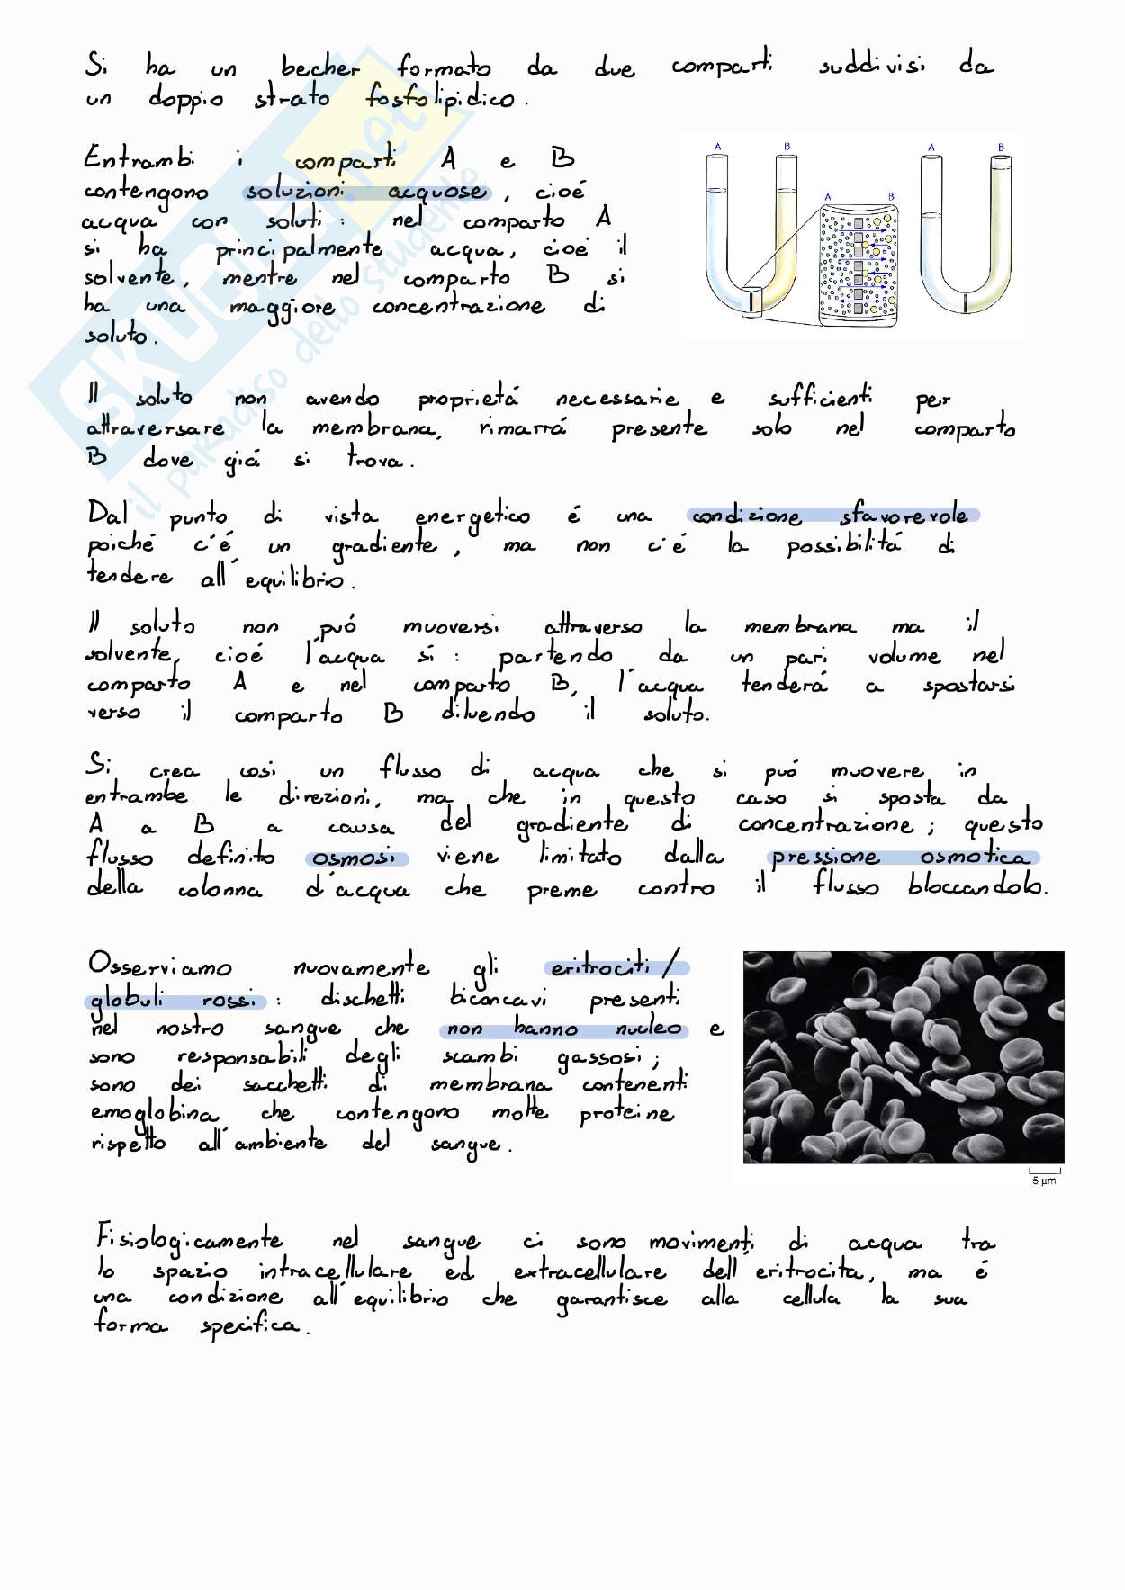 Si ha un becher formato da due comparti suddivisi da
un doppio strato fosfolipidico.
Entrambi i comparti A e B
contengono soluzioni acquose, cioé
acqua con soluti: nel comparto A
si ha principalmente acqua, cioé il
solvente, mentre nel comparto B si
ha una maggiore concentrazione di
soluto.
A B A B
A B
Il soluto non avendo proprietá necessarie e sufficienti per
attraversare la membrana, rimarrá presente solo nel comparto
B dove giá si trova.
Dal punto di vista energetico é una condizione sfavorevole
poiché c'é un gradiente, ma non c'é la possibilitá di
tendere all'equilibrio.
Il soluto non puó muoversi attraverso la membrana ma il
solvente, cioé l'acqua sí: partendo da un pari volume nel
comparto A e nel comparto B, l'acqua tenderá a spostarsi
verso il comparto B diluendo il soluto.
Si crea cosi un flusso di acqua che si puó muovere in
entrambe le direzioni, ma che in questo caso si sposta da
A a B a causa del gradiente di concentrazione; questo
flusso definito osmosi viene limitato dalla pressione osmotica
della colonna d'acqua che preme contro il flusso bloccandolo.
Osserviamo nuovamente gli eritrociti/
globuli rossi: dischetti biconcavi presenti
nel nostro sangue che non hanno nucleo e
sono responsabili degli scambi gassosi;
sono dei sacchetti di membrana contenenti
emoglobina che contengono molte proteine
rispetto all'ambiente del sangue.
5 µm
Fisiologicamente nel sangue ci sono movimenti di acqua tra
lo spazio intracellulare ed extracellulare dell'eritrocita, ma é
una condizione all'equilibrio che garantisce alla cellula la sua
forma specifica.
SKUOLA.net
il paradiso dello studente